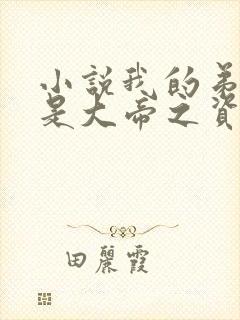 小說我的弟
是大帝之資
田麗霞